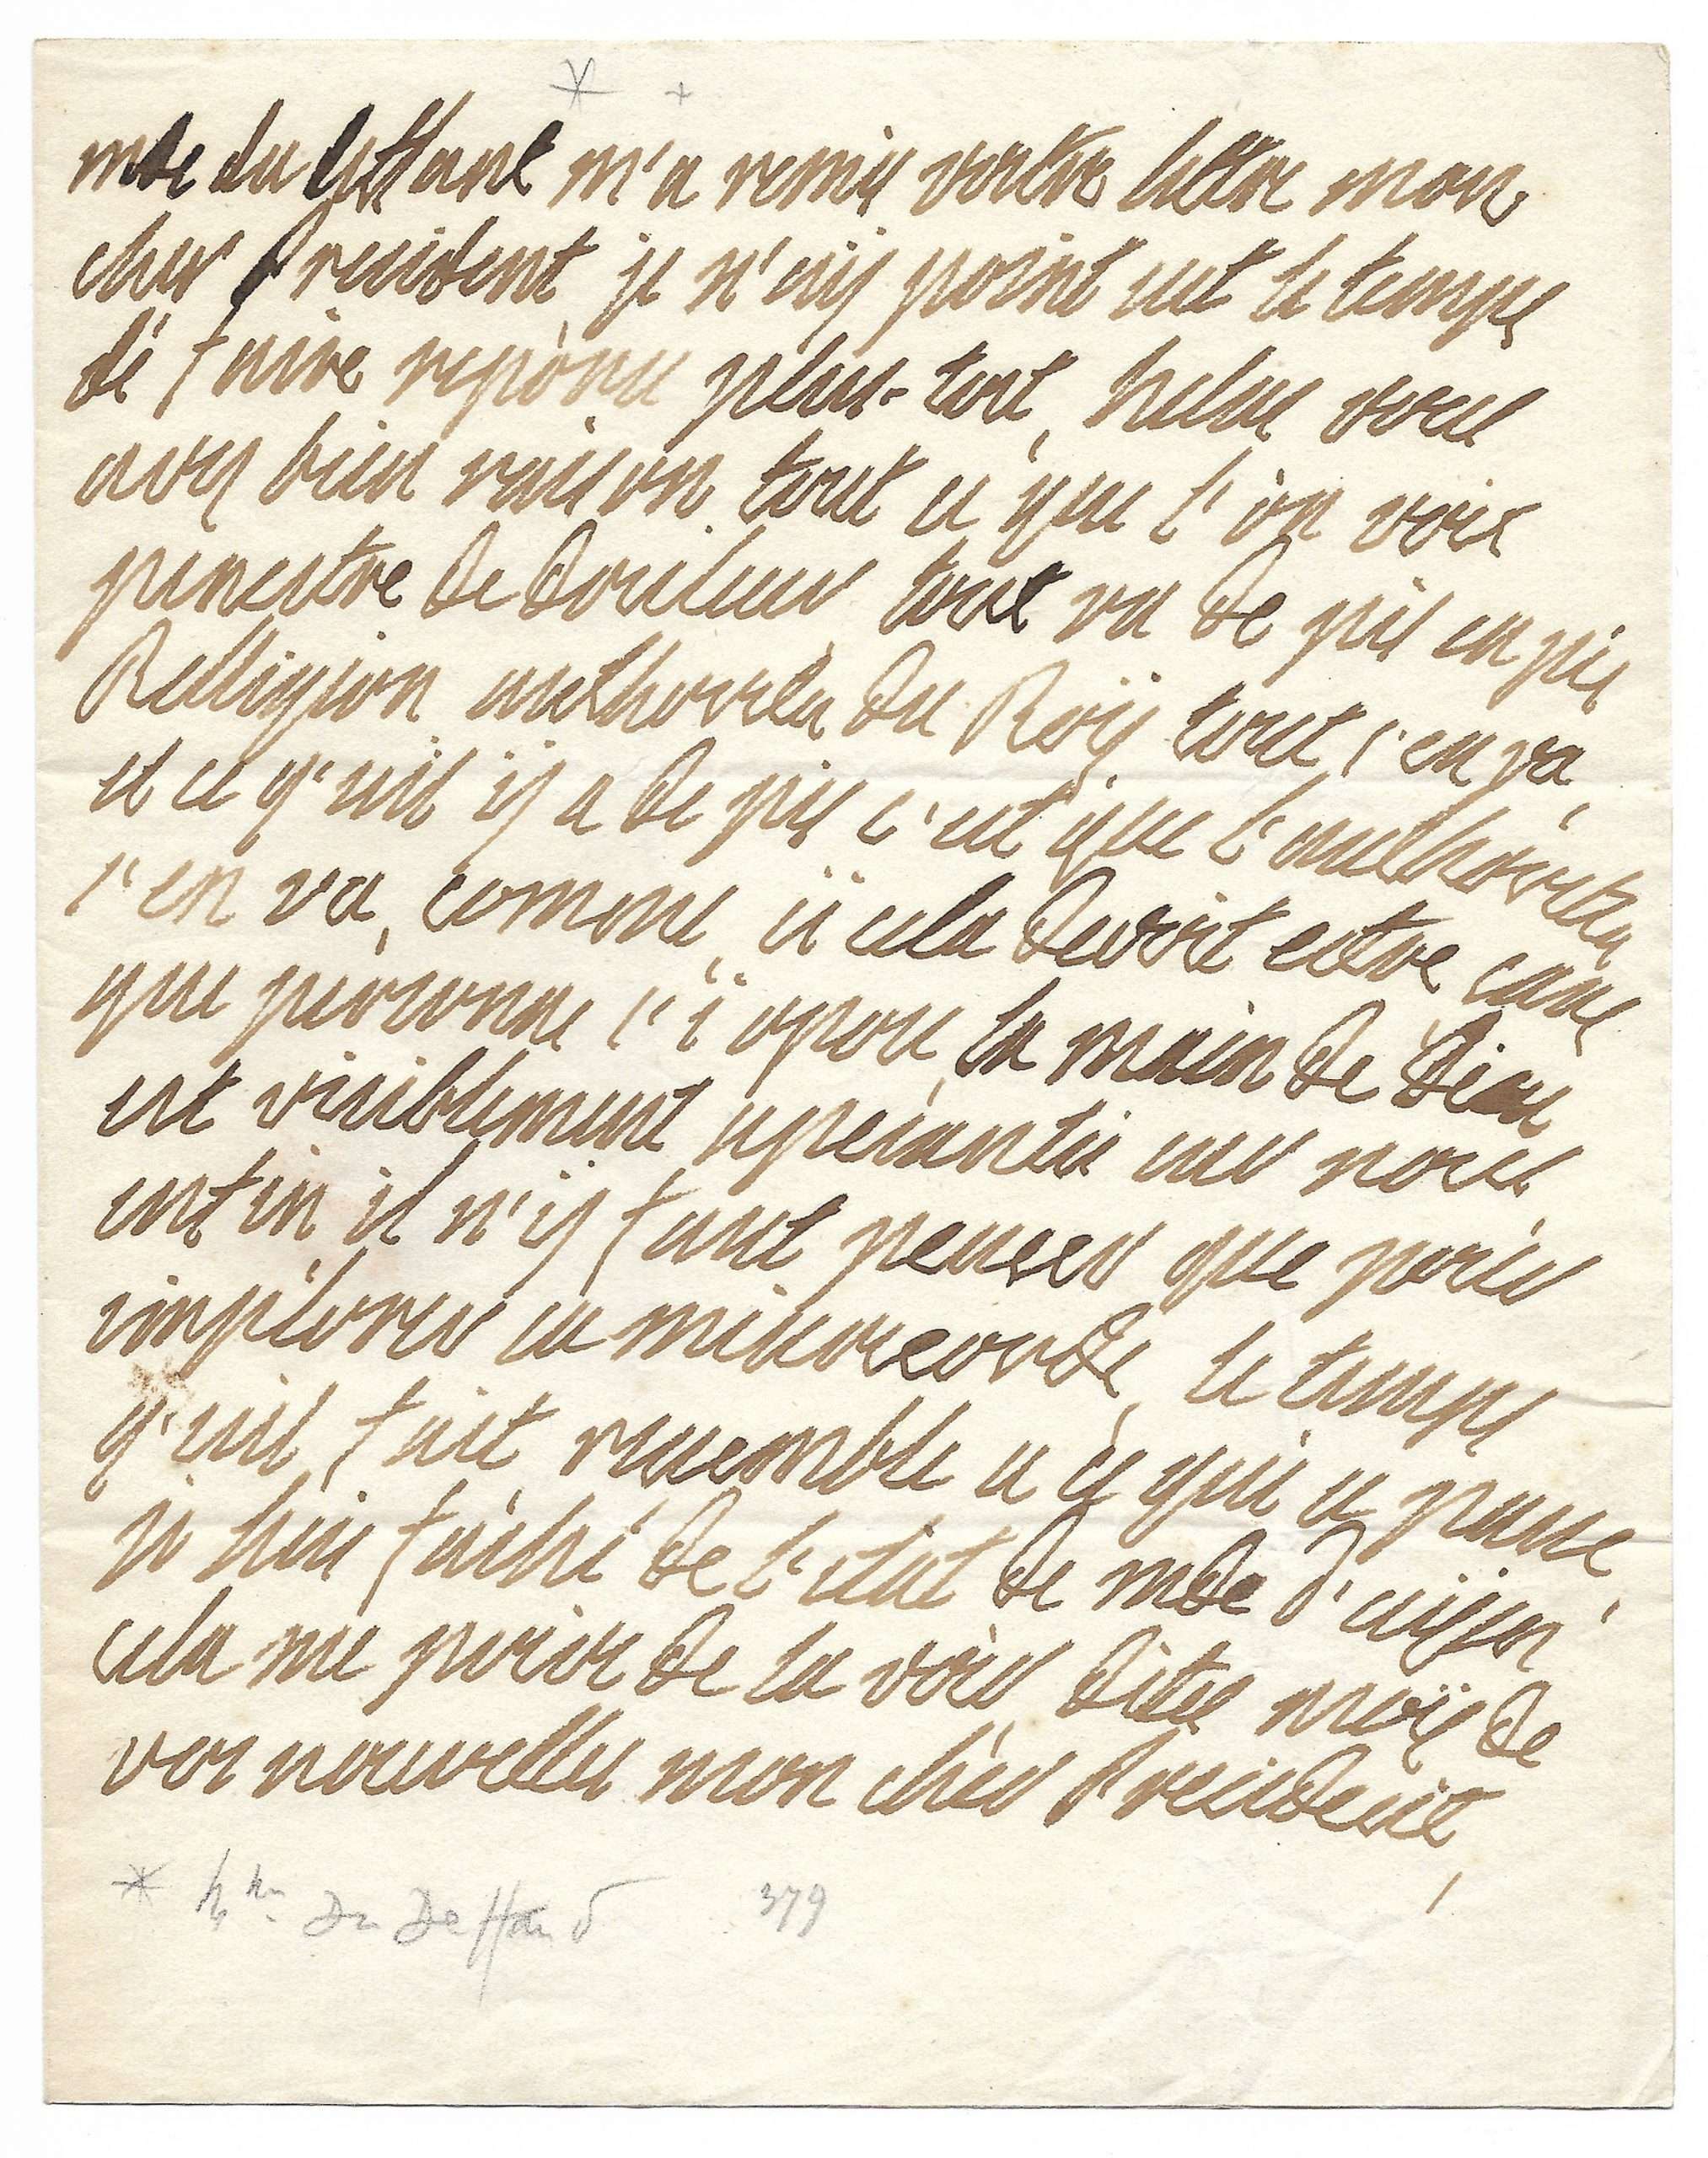 mde du deffant m'a remis vostre lettre mon
cher President je n'aÿ point eut le temps
de faire reponse plus-tost, helas vous
avez bien raison tout ce que l'on voit
penestre de douleur tout va de pis en pis
Relligion authorité du Roÿ tout s'en va,
et ce q'uil ÿ a de pis c'est que l'authorité
s'en va, comme si cela devoit estre sans
que personne s'ï opose, la main de Dieu
est visiblement apesantie sur nous
enfin il n'ÿ faut penser que pour
implorer sa misericorde, le temps
q'uil fait resemble a ce qui ce passe,
je suis fâché de l'etat de mde d'
cela me prive de la voir dites moÿ de
vos nouvelles mon cher President,
* Mme Du Deffand 379